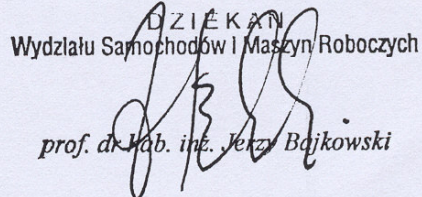 DZIEKAN
Wydziału Samochodów i Maszyn Roboczych
prof. dr hab. inż. Jerzy Bajkowski